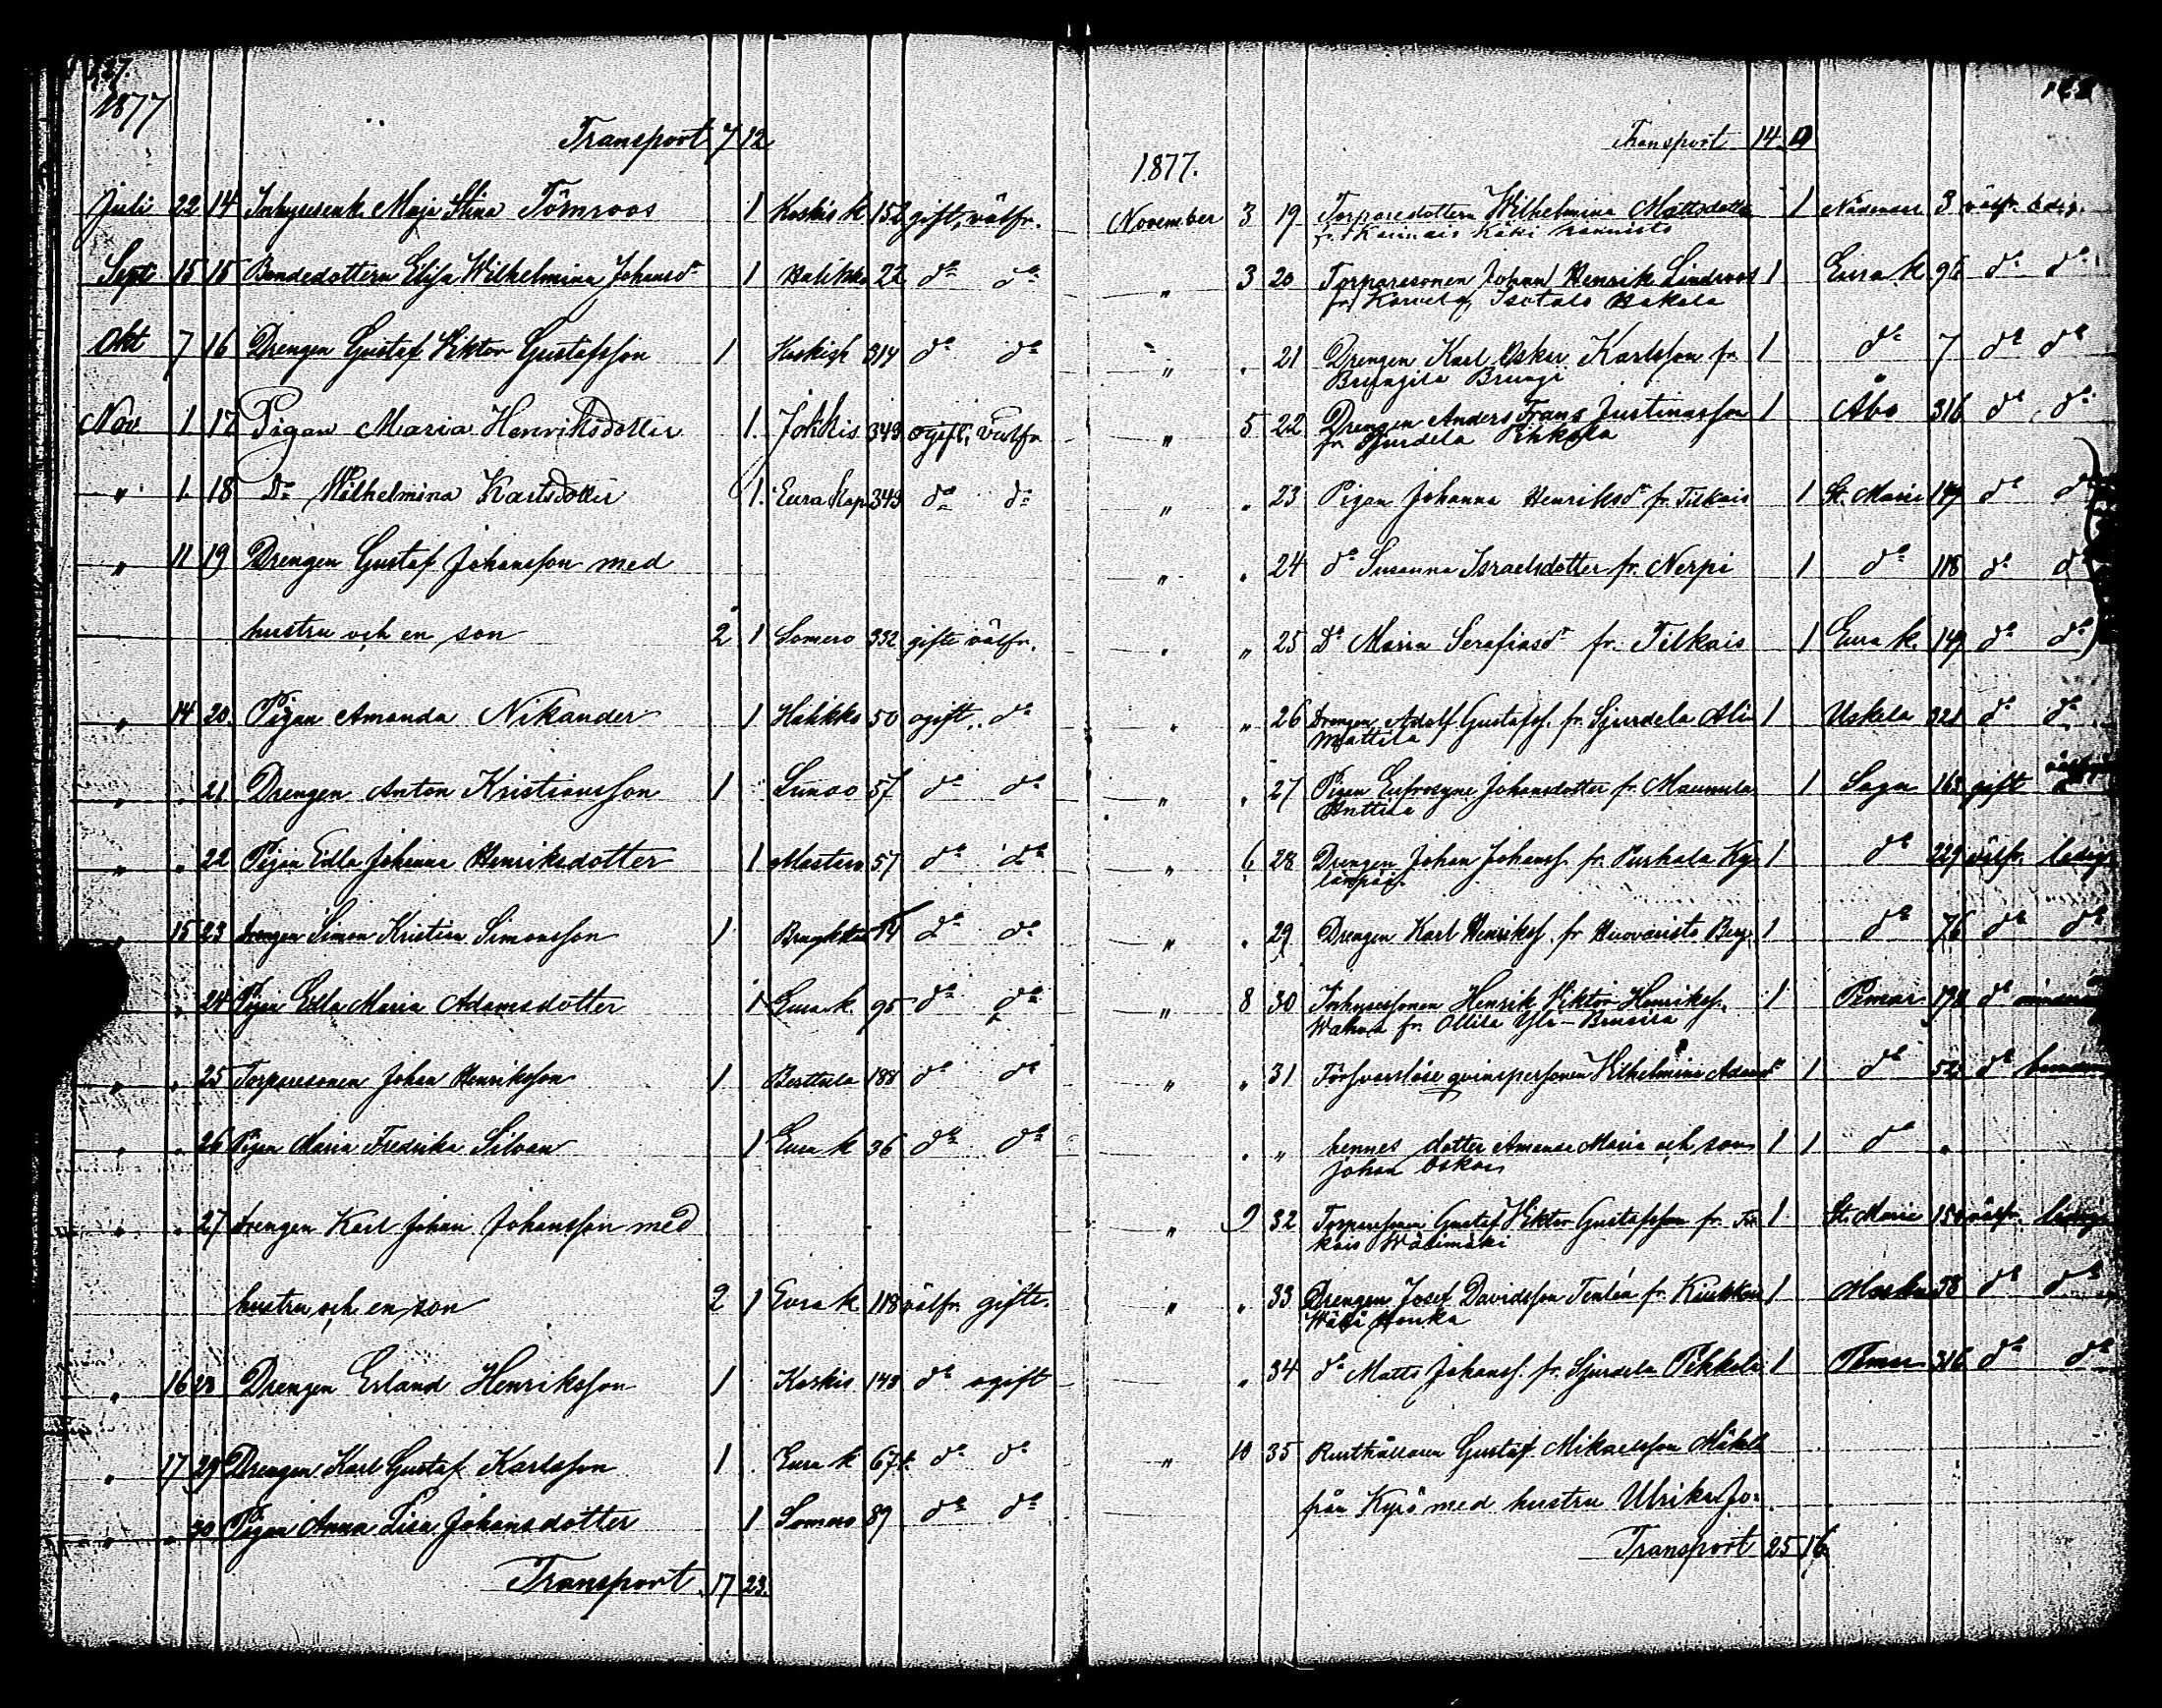 1877
Transport 7 12
Juli 22 14 Inhysesenk. Maja Stina Törnroos 1 Koskis k 152 gift, välfr.
Sept 15 15 Bondedottern Elisa Wilhelmina Johansdr 1 Halikko 22 do do
Okt 7 16 Drengen Gustaf Viktor Gustafsson 1 314 do do
Nov 1 17 Pigan Maria Henriksdotter 1. Jokkis 349 ogift, välfr
" 1. 18 Do Wilhelmina Karlsdotter 1. Eura Kap 349 do do
" 11 19 Drengen Gustaf Johansson med
hustru och en son 2 1 Somero 332 gifte välfr.
" 14 20. Pigan Amanda Nikander 1 Halikko 50 ogift. do
" " 21 Drengen Anton Kristiansson 1 57 do do
" " 22 Pigan Edla Johanna Henriksdotter 1 Masku 57 do do
" 15 23 Drengen Simon Kristian Simonsson 1 do do
" 24 Pigan Edla Maria Adamsdotter 1 Eura k. 95 do do
" " 25 Torparesonen Johan Henriksson 1 188 do do
" " 26 Pigan Maria Fredrika Silvan 1 Eura k 36 do do
" " 27 Drengen Karl Johan Johansson med
hustru och en son 2 1 Eura k 118 välfr. gifte.
" 16 28 Drengen Erland Henriksson 1 Koskis 148 do ogift
" 17 29 Drengen Karl Gustaf Karlsson 1 Eura k 67 do do
" " 30 Pigan Anna Lisa Johansdotter 1 Somero 89 do do
Transport 17 23.
Transport 14 9
1877.
November 3 19 Torparedottern Wilhelmina Mattsdotter 1 3 välfr. ledig.
fr. Karinais Käki
" 3 20 Torparesonen Johan Henrik Lindroos 1 Eura k 95 do do
fr Karvela, Isotalo Hakala
" " 21 Drengen Karl Oskar Karlsson fr 1 do 7 do do
" 5 22 Drengen Anders Frans Justinusson 1 Åbo 316 do do
fr Sjurdela Pihkala
" " 23 Pigan Johanna Henriksdr fr. Tilkais 1 St. Marie 149 do do
" " 24 do Susanna Israelsdotter fr. Nerpi 1 do 118 do do
" " 25 Do Maria Serafiasdr fr. Tilkais 1 Eura k. 149 do do
" " 26 Drengen Adolf Gustafss. fr. Sjurdela Ali 1 Uskela 321 do do
Mattila
" " 27 Pigan Eufrosyne Johansdotter fr. Maunula 1 Sagu 163 gift
Anttila
" 6 28 Drengen Johan Johanss. fr. Purhala Ky- 1 do 229 välfr. ledig
länpää.
" " 29 Drengen Karl Henrikss. fr 1 do 76 do do
" 8 30 Inhysessonen Henrik Viktor Henrikss. 1 Pemar 192 do
fr. Ollila Yli-
" " 31 Försvarslösa qvinspersonen Wilhelmina Adamsdr 1 do 52 do
" " hennes dotter Amanda Maria och son 1 1 do "
Johan Oskar
" 9 32 Torparesonen Gustaf Viktor Gustafsson fr. Til- 1 St. Marie 150 välfr. ledig
kais Wälimäki
" " 33 Drengen Josef Davidsson fr. 1 Masku 38 do do
" 34 do Matts Johanss. fr. Sjurdela Pihkala 1 Pemar 316 do do
" 10 35 Rusthållaren Gustaf Mikaelsson Mäkelä
från Kyrö med hustru Ulrika Jo-
Transport 25 16.